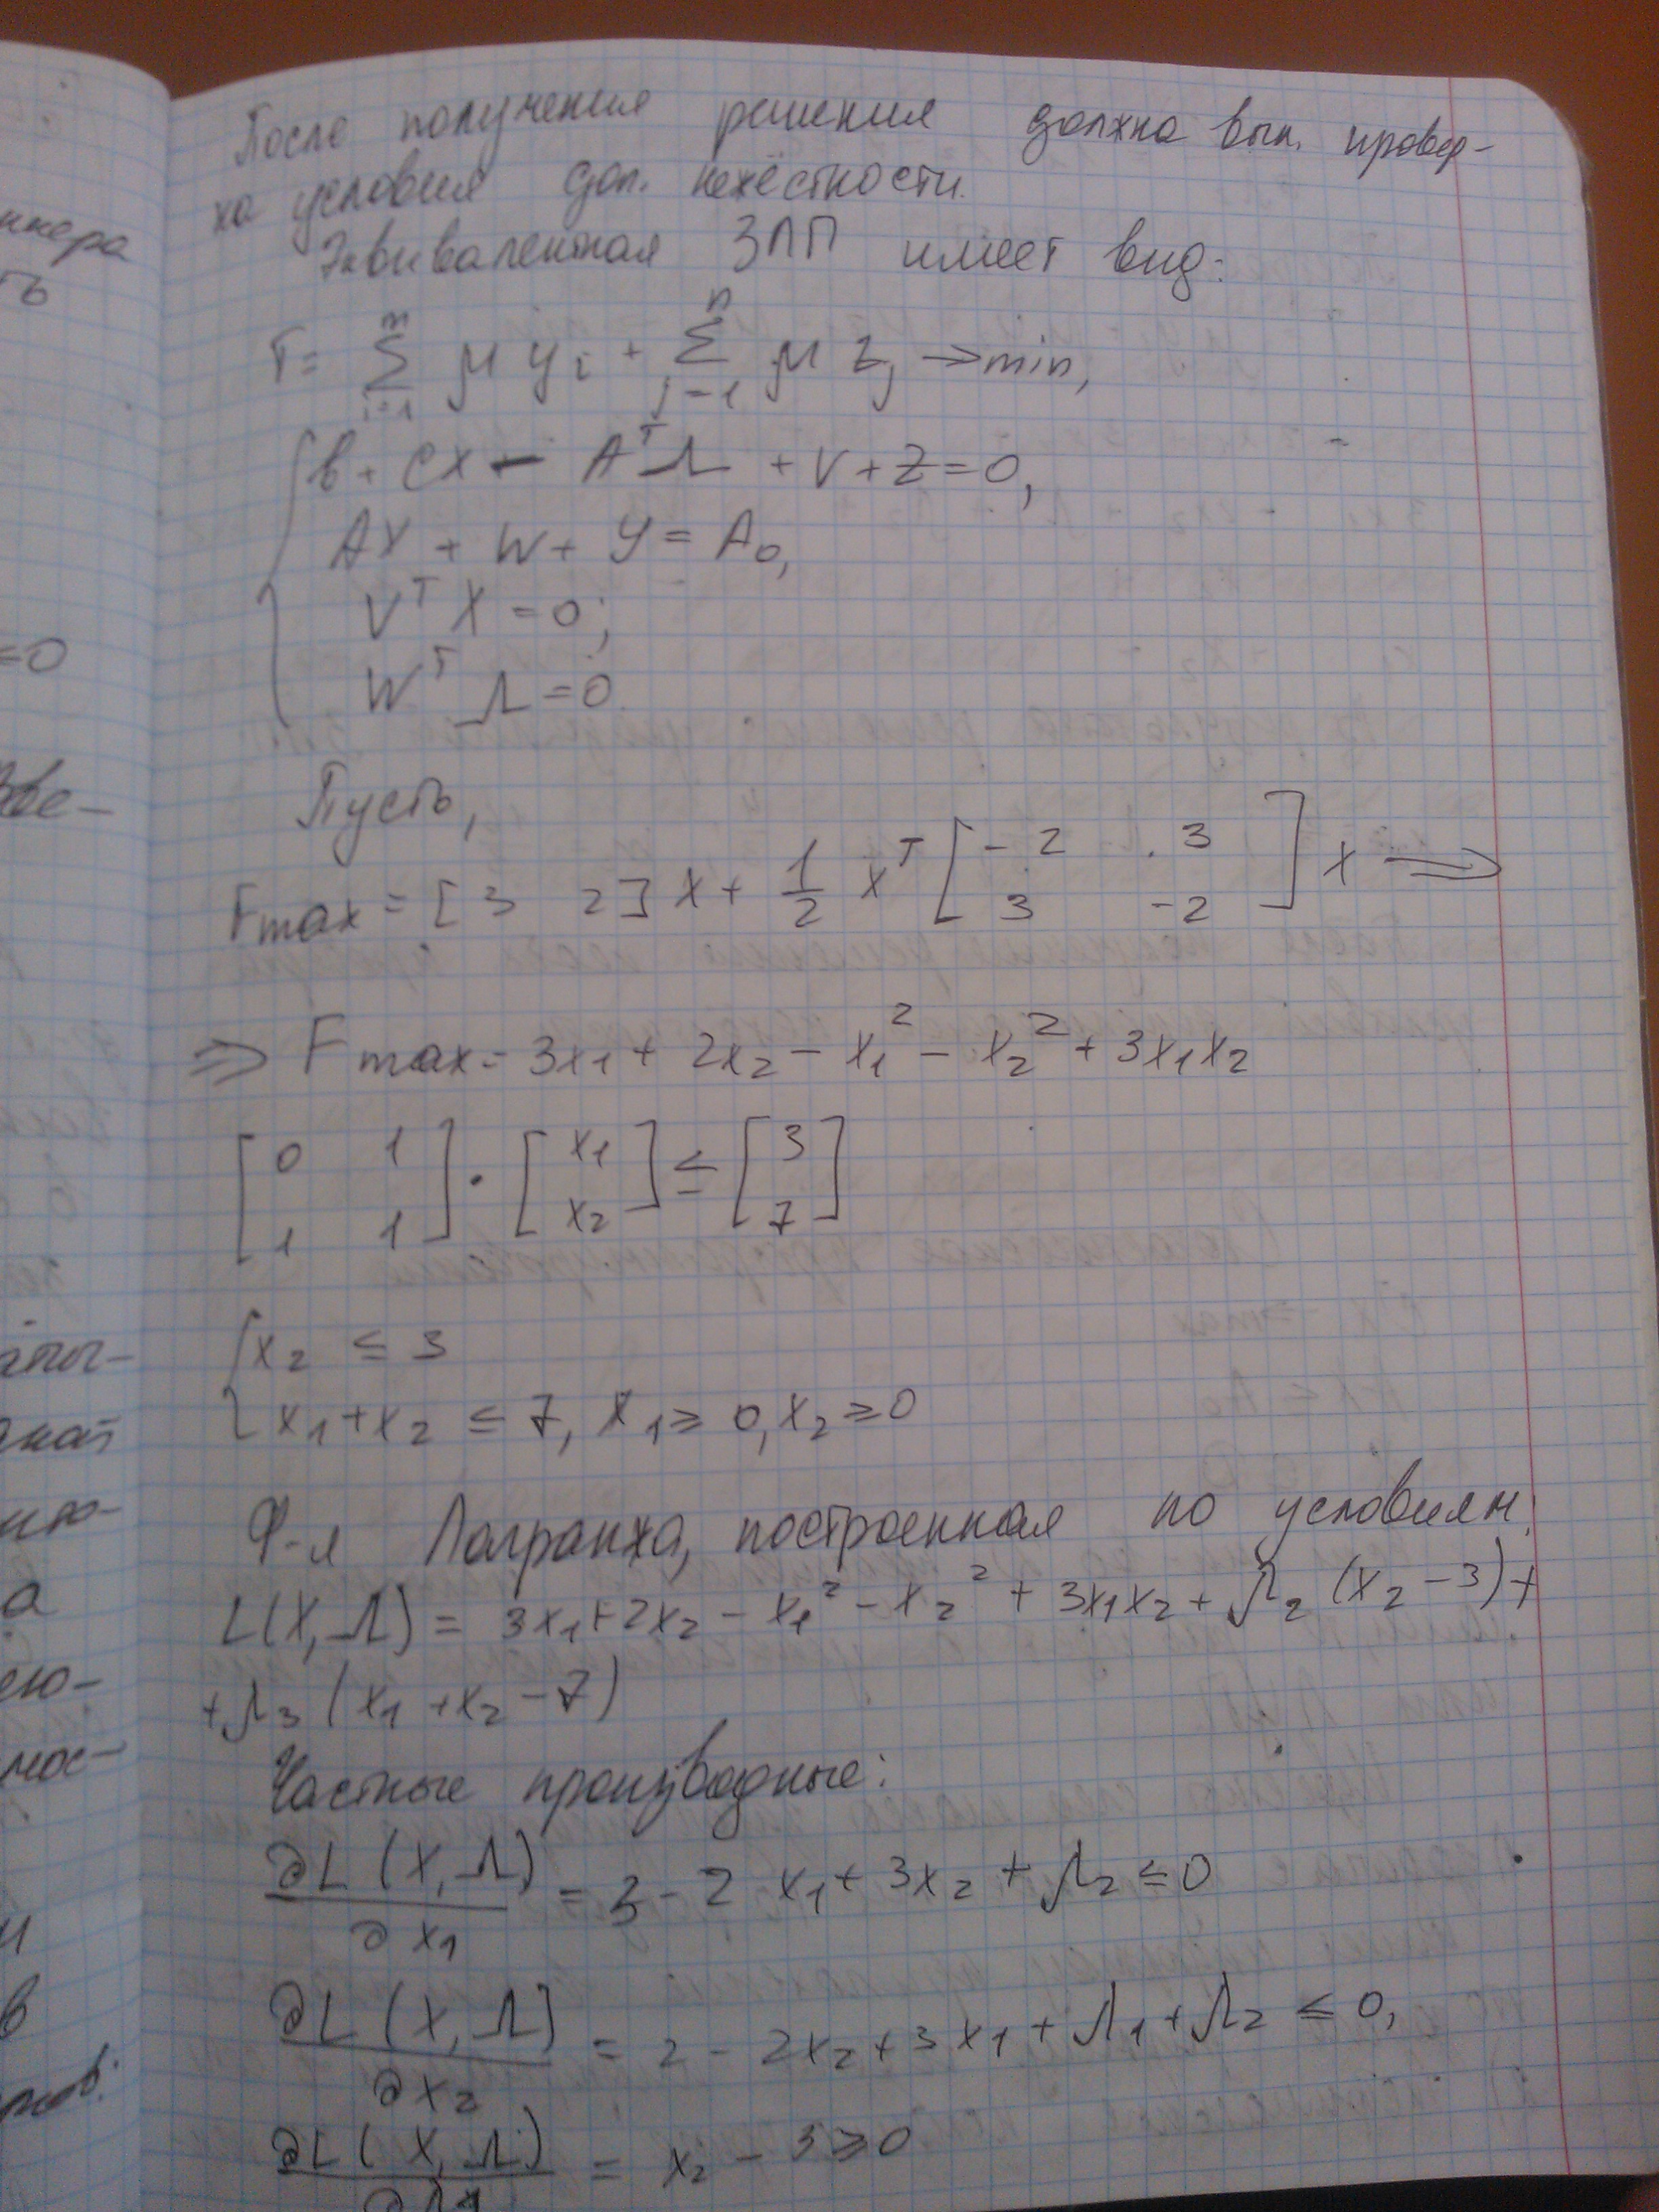 После получения решения должна вып. провер-
ка условия доп. нежёсткости.
Эквивалентная ЗЛП имеет вид:
T = Σ_{i=1}^{m} μ y_i + Σ_{j=1}^{n} μ z_j → min,
{ B + CX - A^T Λ + V + Z = 0,
AX + W + Y = A_0,
V^T X = 0;
W^T Λ = 0
Пусть,
F max = [3 2] X + 1/2 X^T [-2 3; 3 -2] X ⇒
⇒ F max = 3x_1 + 2x_2 - x_1^2 - x_2^2 + 3x_1x_2
[0 1; 1 1] · [x_1; x_2] ≤ [3; 7]
{ x_2 ≤ 3
x_1 + x_2 ≤ 7, x_1 ≥ 0, x_2 ≥ 0
Ф-я Лагранжа, построенная по условиям:
L(X, Λ) = 3x_1 + 2x_2 - x_1^2 - x_2^2 + 3x_1x_2 + Λ_2 (x_2 - 3) +
+ Λ_3 (x_1 + x_2 - 7)
Частные производные:
∂L(X, Λ)/∂x_1 = 3 - 2 x_1 + 3x_2 + Λ_2 ≤ 0
∂L(X, Λ)/∂x_2 = 2 - 2x_2 + 3x_1 + Λ_1 + Λ_2 ≤ 0,
∂L(X, Λ)/∂Λ_1 = x_2 - 3 ≥ 0
нкера
ть
=0
Вве-
а
ею-
в